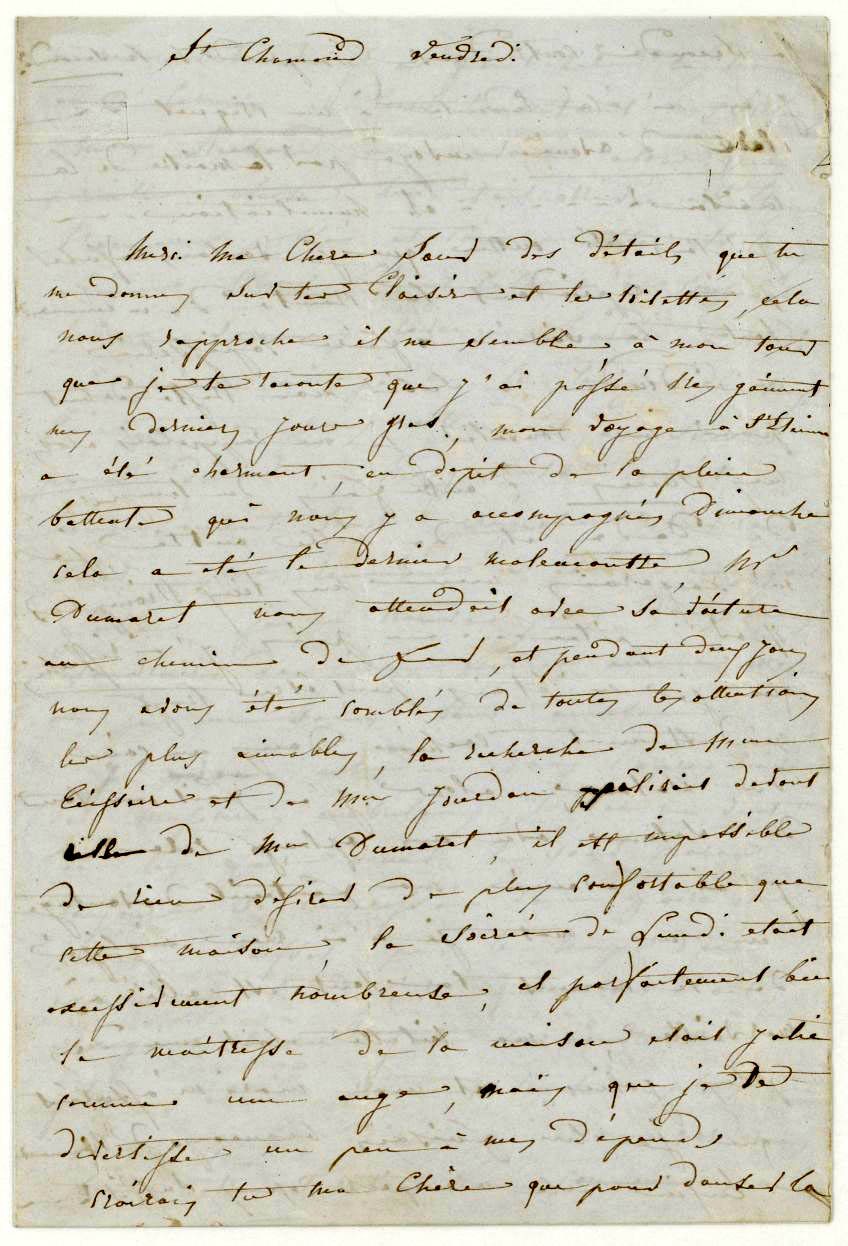 St Chamond Vendredi.
Merci ma Chere Soeur des détails que tu
me donnes sur tes plaisirs et tes toilettes, cela
nous rapproche il me semble, à mon tour
que je te raconte que j'ai passé très gaiement
mes derniers jours gras, mon voyage à St Etienne
a été charmant, en dépit de la pluie
battante qui nous y a accompagnés Dimanche
cela a été le dernier malencontre, Mr
Dumaret nous attendait avec sa voiture
au chemin de fer, et pendant deux jours
nous avons été comblés de toutes les attentions
les plus aimables, la recherche de Mme
et de Mme Jourdan pâlirait devant
celle de Mme Dumaret, il est impossible
de rien désirer de plus confortable que
cette maison, la soirée de Lundi était
excessivement nombreuse, et parfaitement bien
la maîtresse de la maison etait jolie
comme un ange, mais que je te
divertisse un peu à mes dépends
croirais tu ma Chère que pour danser la